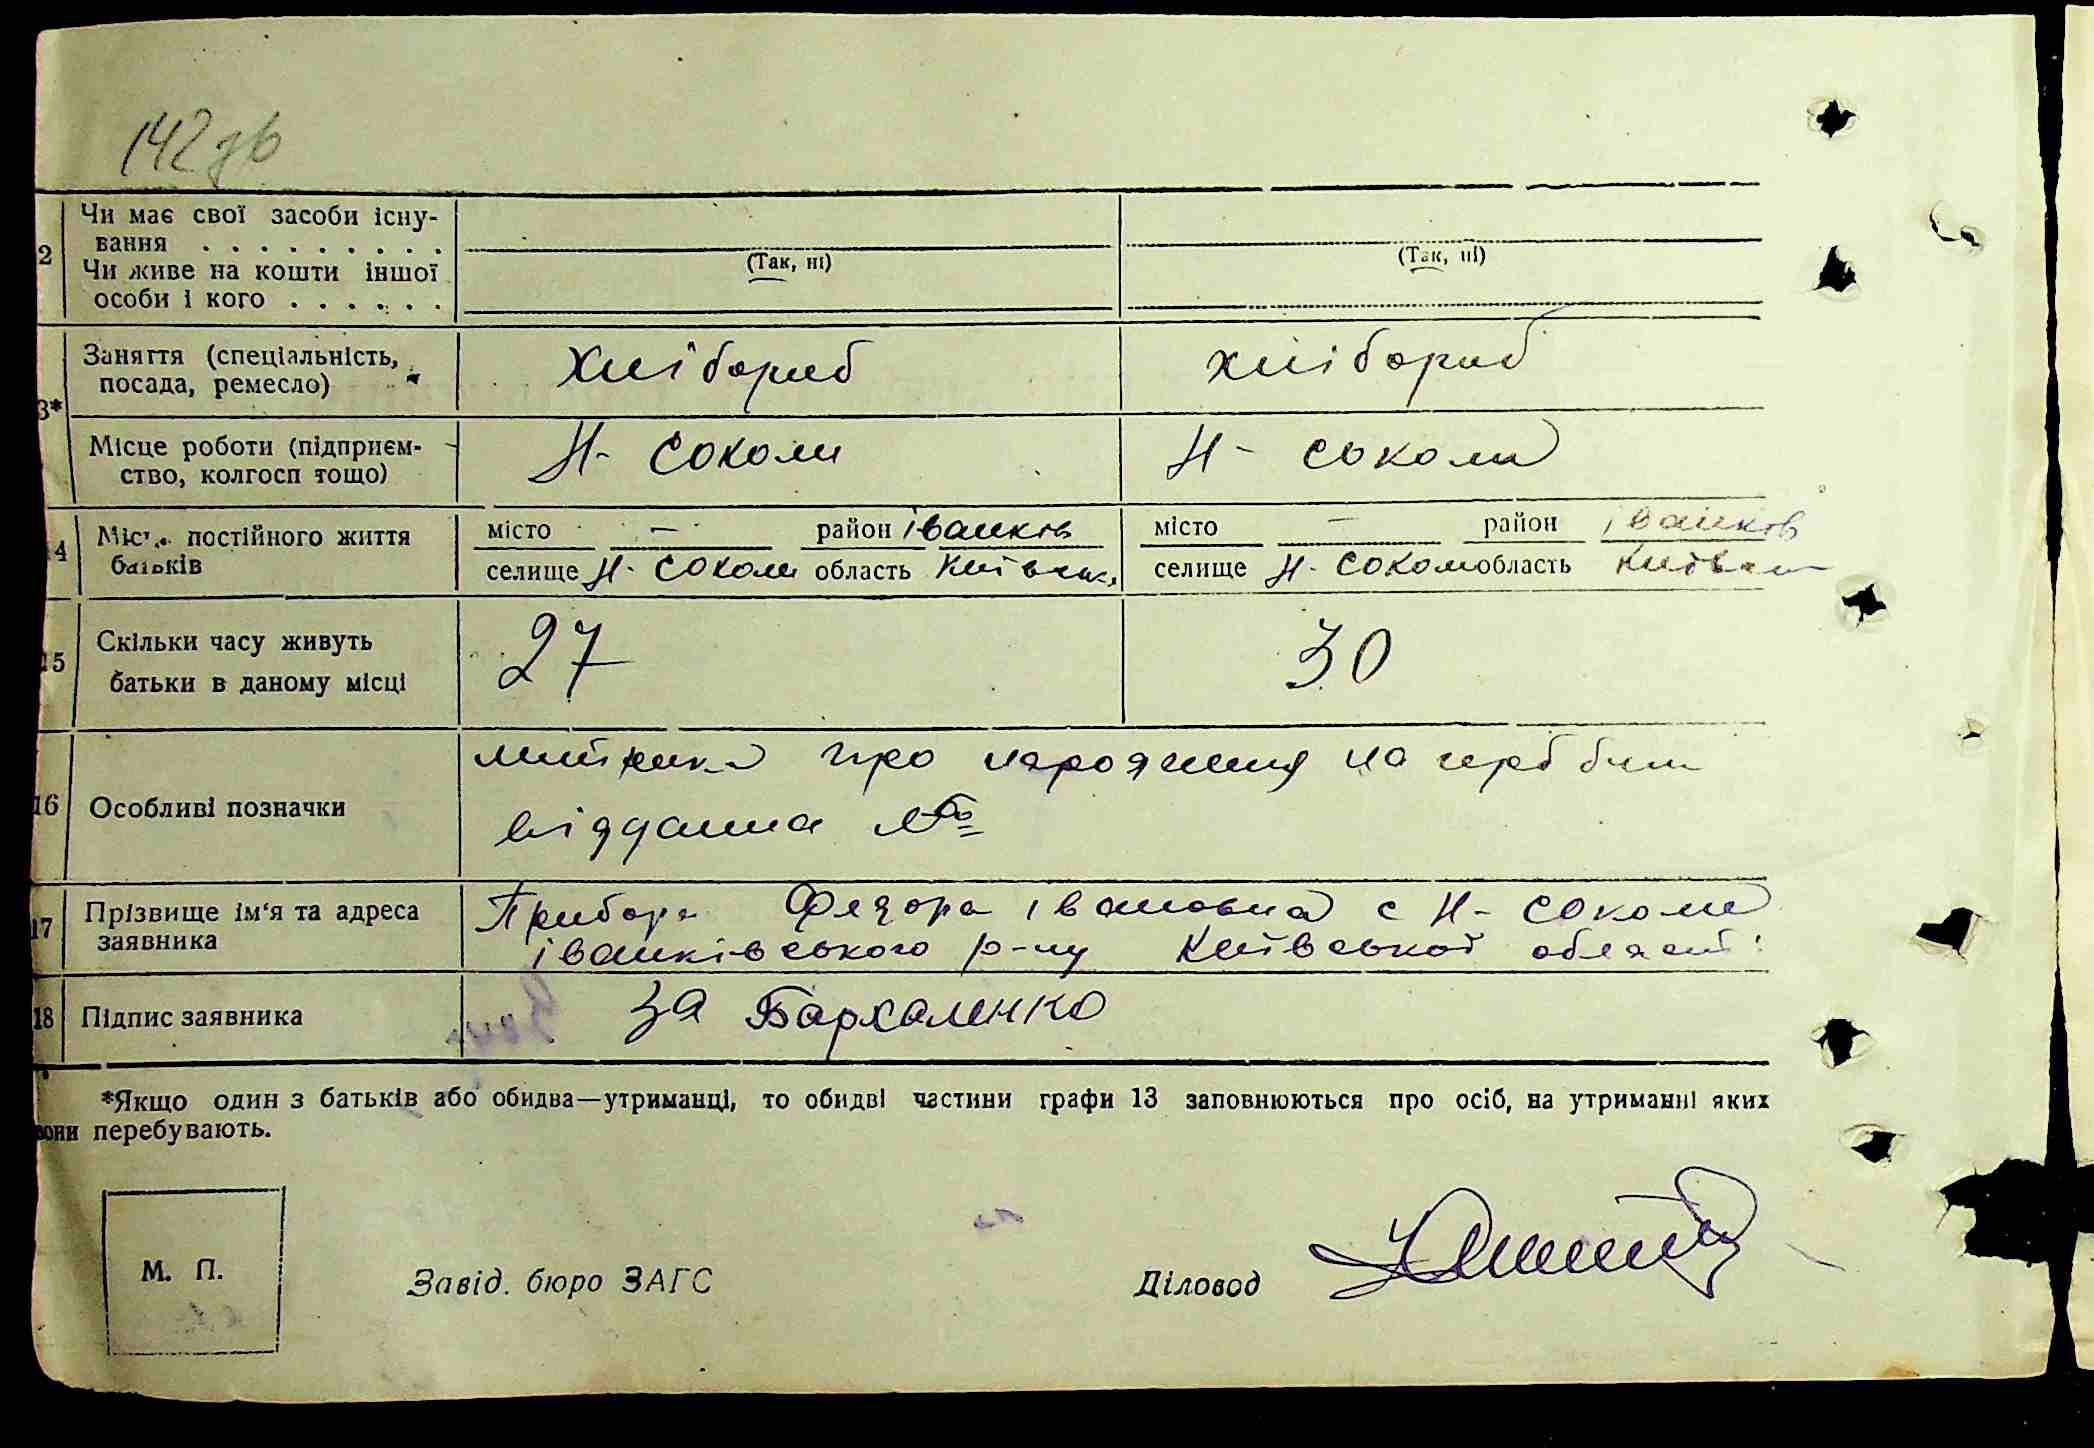 142 зв
2 Чи має свої засоби існу-
вання . . . . . . . . .
Чи живе на кошти іншої
особи і кого . . . . . .
(Так, ні) (Так, ні)
3* Заняття (спеціальність,
посада, ремесло) хлібороб хлібороб
Місце роботи (підприєм-
ство, колгосп тощо) Н- Соколи Н- Соколи
14 Місце постійного життя
батьків
місто — район іванков місто — район іванков
селище Н- Соколи область Київська селище Н- Соколи область
15 Скільки часу живуть
батьки в даному місці 27 30
16 Особливі позначки
про народження на
віддання №
17 Прізвище ім'я та адреса
заявника
Федора івановна с Н- Соколи
іванківського р-ну Київської області
18 Підпис заявника за Бархаленко
*Якщо один з батьків або обидва—утриманці, то обидві частини графи 13 заповнюються про осіб, на утриманні яких
вони перебувають.
М. П.
Завід. бюро ЗАГС
Діловод